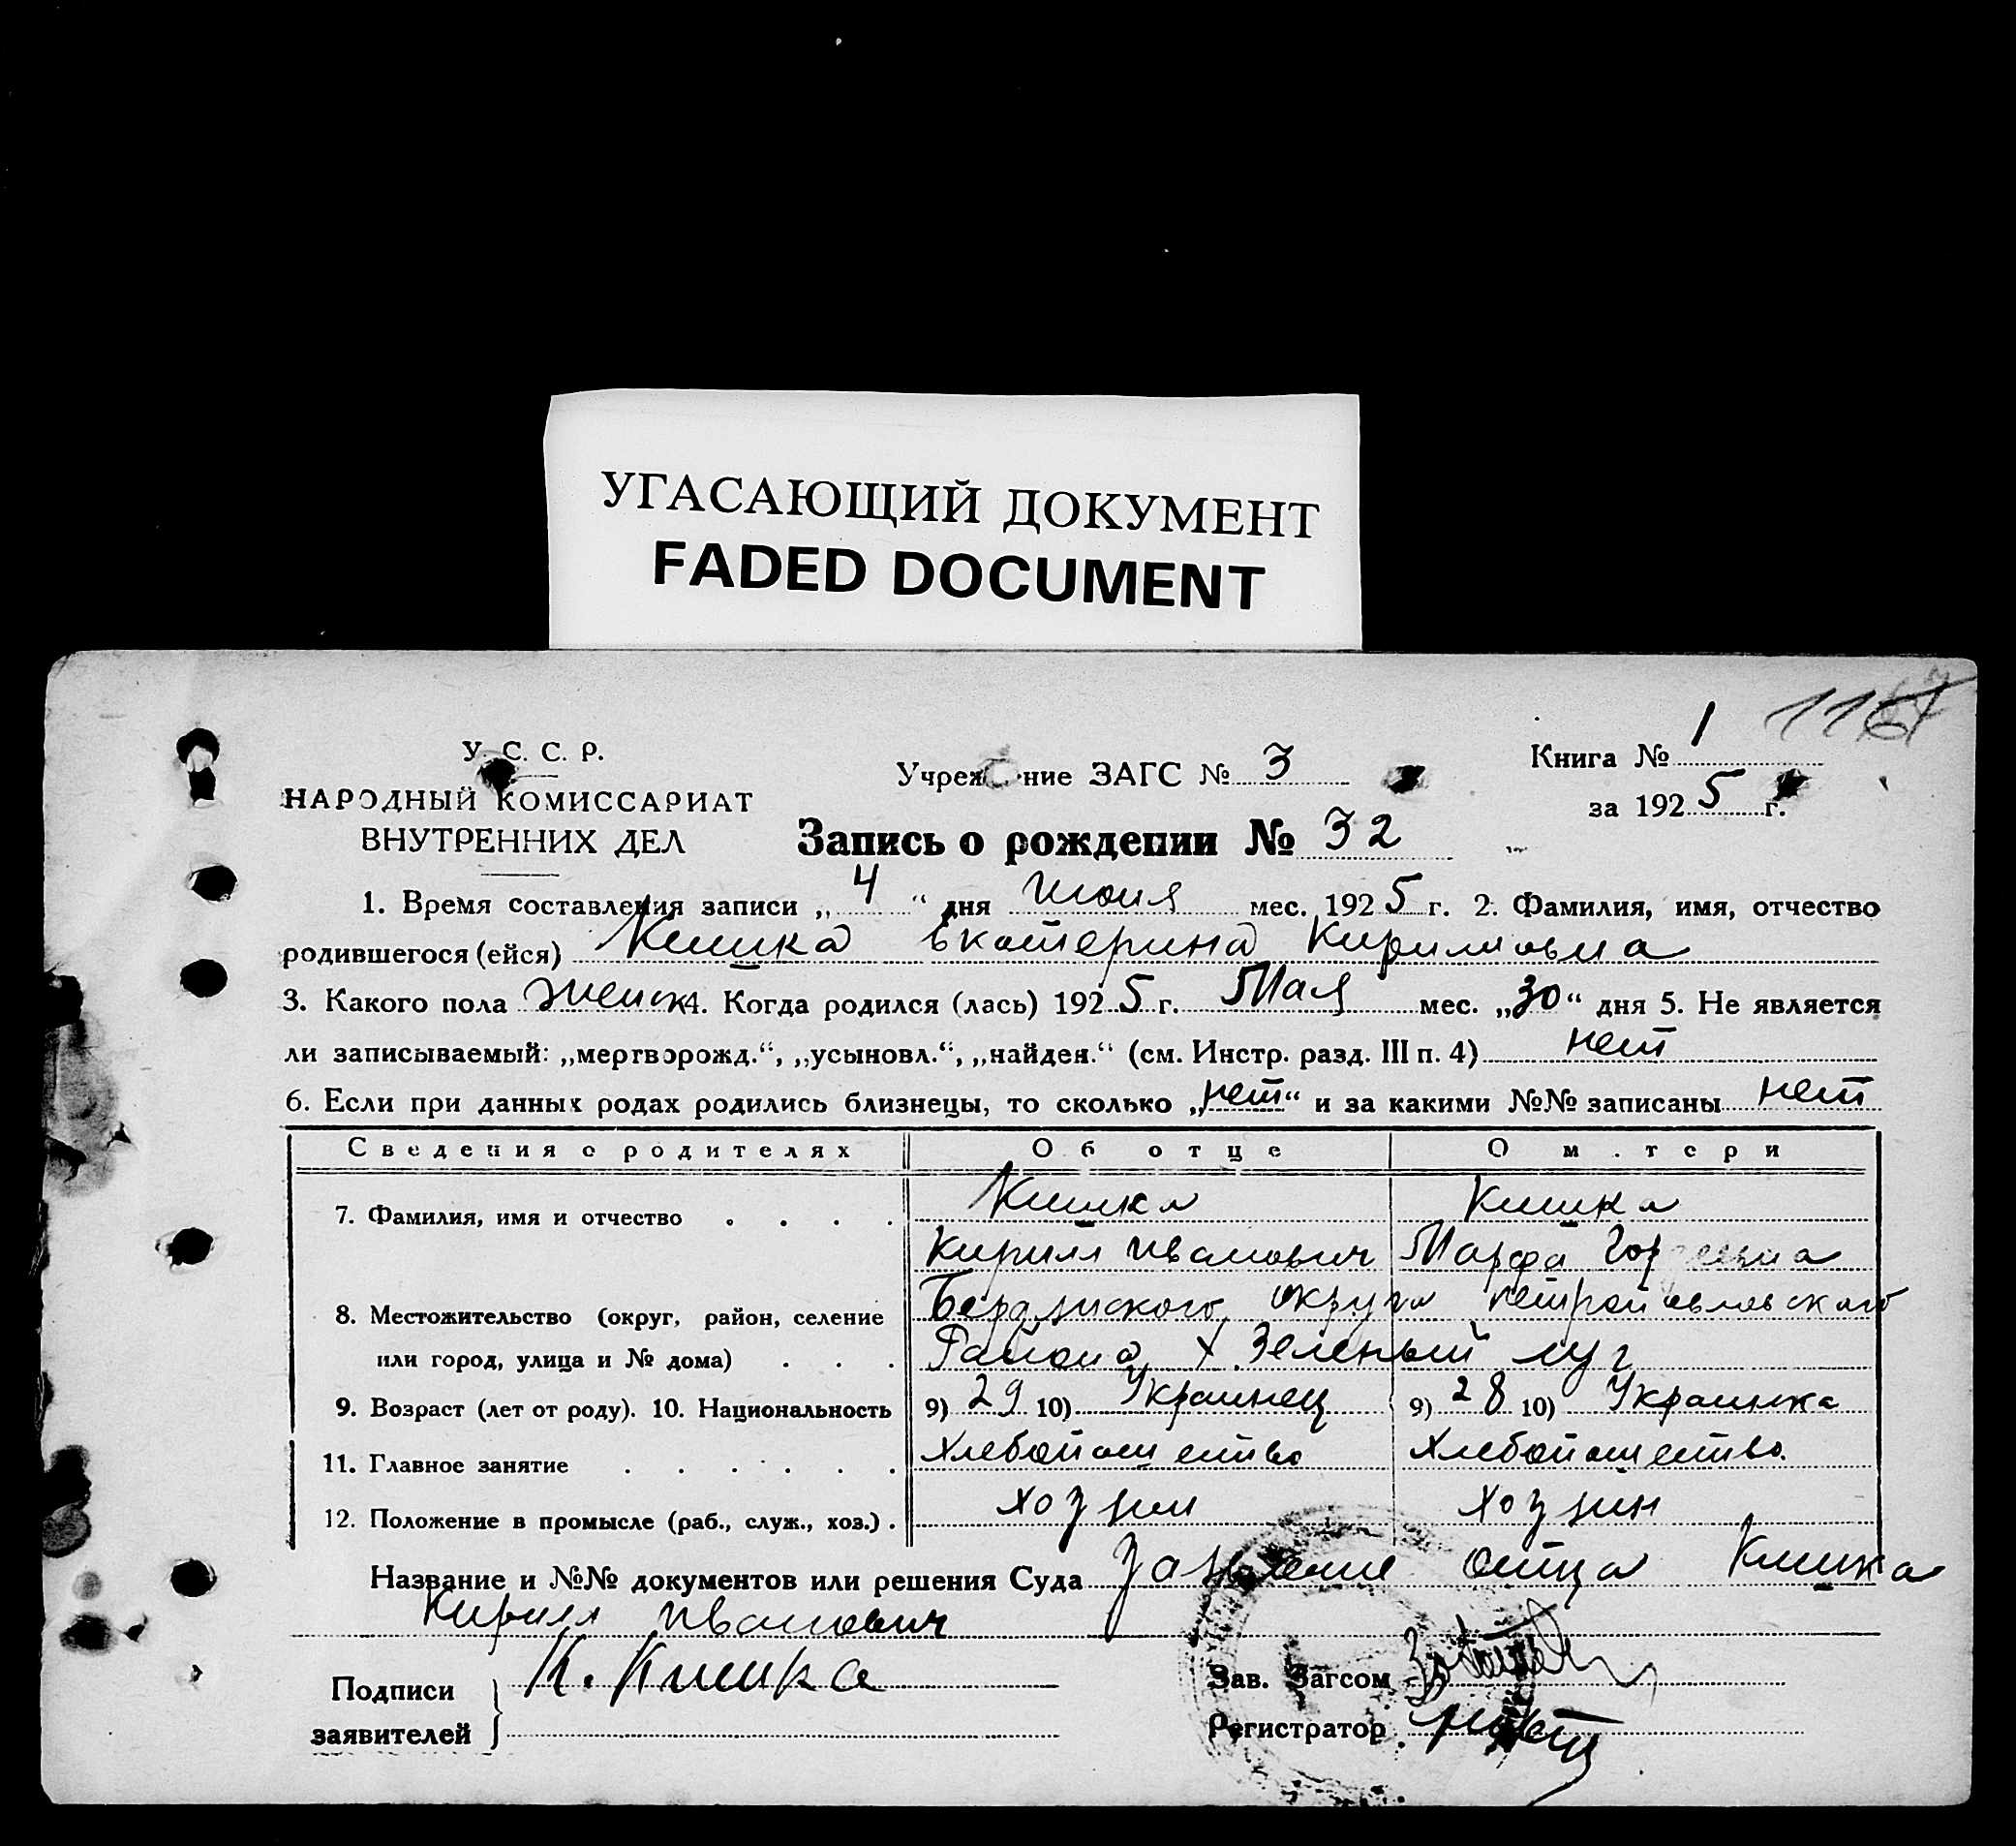 УГАСАЮЩИЙ ДОКУМЕНТ
FADED DOCUMENT
У. С. С. Р.
НАРОДНЫЙ КОМИССАРИАТ
ВНУТРЕННИХ ДЕЛ
Учреж ние ЗАГС № 3
Книга № 1
за 1925 г.
Запись о рождении № 32
1. Время составления записи „ 4 “ дня Июня мес. 1925 г. 2. Фамилия, имя, отчество
родившегося (ейся) Кишка Екатерина Кирилловна
3. Какого пола женск 4. Когда родился (лась) 1925 г. Мая мес. „30“ дня 5. Не является
ли записываемый: „мертворожд.“, „усыновл.“, „найден.“ (см. Инстр. разд. III п. 4) нет
6. Если при данных родах родились близнецы, то сколько „нет“ и за какими №№ записаны нет
Сведения о родителях Об отце О м.тери
7. Фамилия, имя и отчество . . . . Кишка Кишка
Кирилл Иванович Марфа
8. Местожительство (округ, район, селение Бердянского округа Петропавловского
или город, улица и № дома) . . . Района х. Зеленый луг
9. Возраст (лет от роду). 10. Национальность 9) 29 10) Украинец 9) 28 10) Украинка
11. Главное занятие . . . . . . Хлебопашество Хлебопашество.
12. Положение в промысле (раб., служ., хоз.) . хозяин хозяин
Название и №№ документов или решения Суда Заявление отца Кишка
Кирилл Иванович
Подписи
заявителей
К. Кишка
Зав. Загсом
Регистратор